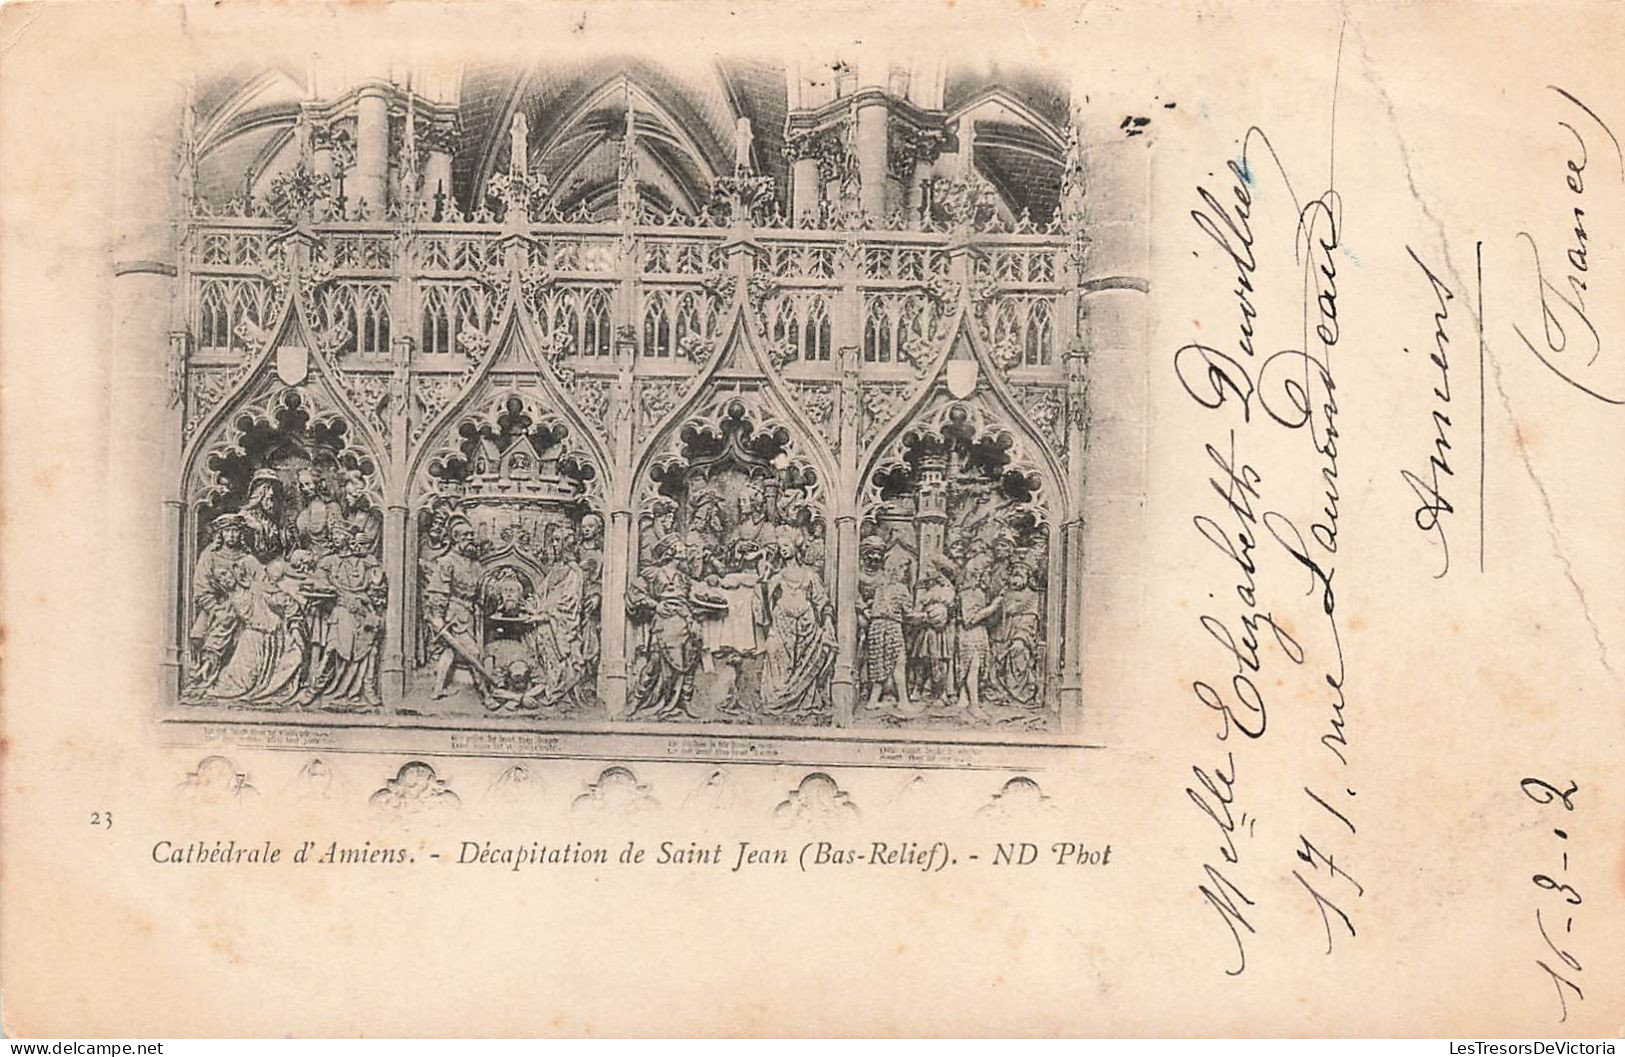 23
Cathédrale d'Amiens. - Décapitation de Saint Jean (Bas-Relief). - ND Phot
Melle Elizabeth Duvillier
171. rue Laurendeau
Amiens
(France)
16-3-12
LesTresorsDeVictoria